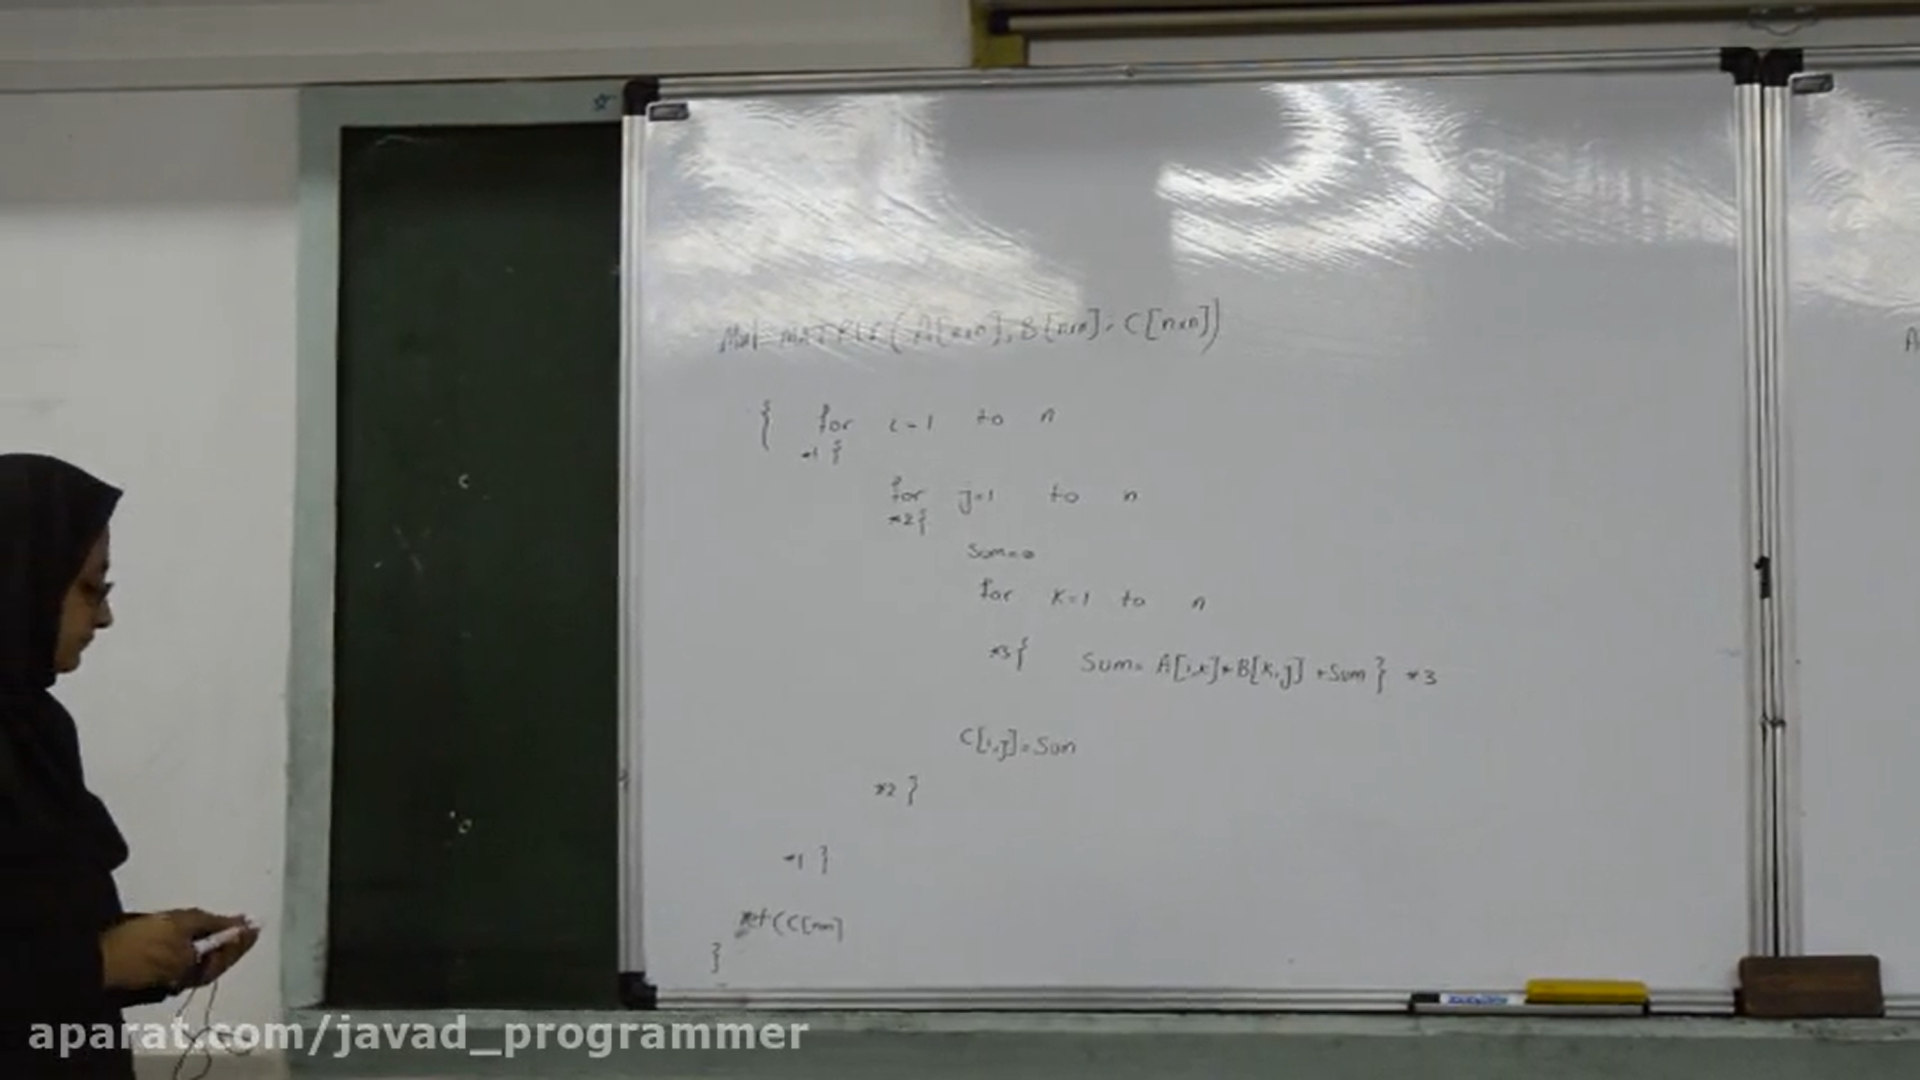 Mul MATRIS (A[n×n], B[n×n], C[n×n])
{ for i=1 to n
*1 {
for j=1 to n
*2 {
Sum=0
for K=1 to n
*3 { Sum= A[i,K]*B[K,j] +Sum } *3
C[i,j]=Sum
*2 }
*1 }
ret(C[nxn]
}
A
aparat.com/javad_programmer